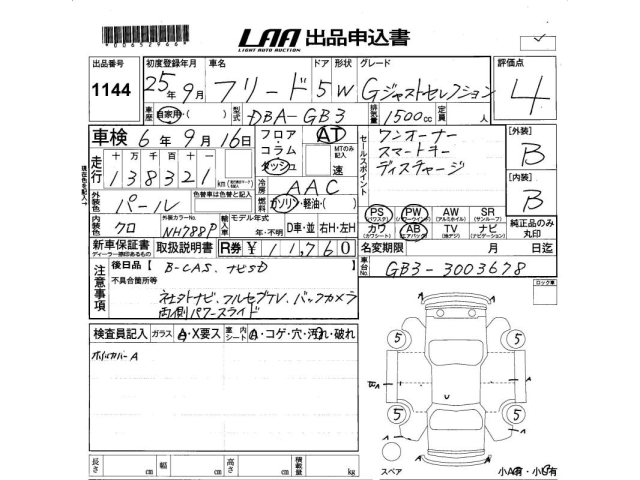 *006529664*
LAA 出品申込書
LIGHT AUTO AUCTION
出品番号 初度登録年月 車名 ドア 形状 グレード 評価点
1144 25年9月 フリード 5 W Gジャストセレクション 4
車歴 自家用・( ) 型式 DBA-GB3 排気量 1500cc 定員 人
車検 6年9月16日 フロア・コラム・ダッシュ AT MTのみ記入 速
セールスポイント ワンオーナー
スマートキー
ディスチャージ
[外装] B
走行 十万千百十一 138321 km
現在色を記入
冷房 AAC
[内装] B
外装色 パール 色替車は色替と記入
燃料 ガソリン・軽油・( )
PS (パワステ) PW (パワーウインドウ) AW (アルミホイル) SR (サンルーフ) 純正品のみ丸印
内装色 クロ 外装カラーNo. NH788P 輸入車 モデル年式 年・不明 D車・並 右H・左H
カワ (カワシート) AB (エアバック) TV (地デジ) ナビ (ナビゲーション)
新車保証書 ディーラー捺印あるもの 取扱説明書 R券 ¥11,760 名変期限 月 日迄
注意事項 後日品【 B-CAS、ナビSD 】 車台No. GB3-3003678
不具合箇所等
社外ナビ、フルセグTV、バックカメラ
両側パワースライド
ロック車
検査員記入 ガラス A・X要ス 室内シート A・コゲ・穴・汚れ・破れ
5 5
A A
U
5 5
A A
A A
長さ cm 幅 cm 高さ cm 積載量 kg
スペア 小A有・小U有